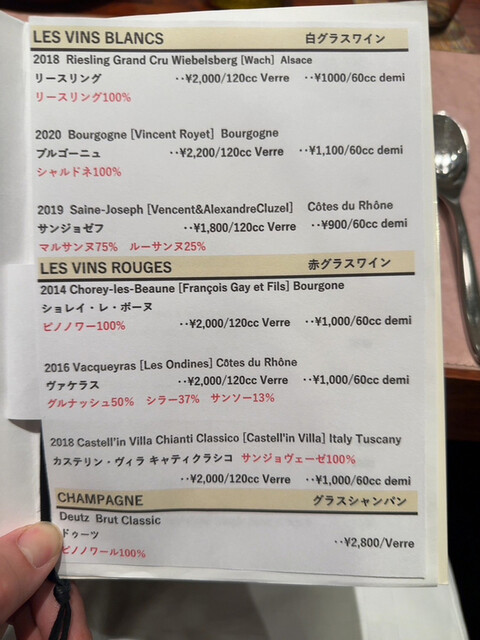 LES VINS BLANCS 白グラスワイン
2018 Riesling Grand Cru Wiebelsberg [Wach] Alsace
リースリング ‥¥2,000/120cc Verre ‥¥1000/60cc demi
リースリング100%
2020 Bourgogne [Vincent Royet] Bourgogne
ブルゴーニュ ‥¥2,200/120cc Verre ‥¥1,100/60cc demi
シャルドネ100%
2019 Saine-Joseph [Vencent&AlexandreCluzel] Côtes du Rhône
サンジョゼフ ‥¥1,800/120cc Verre ‥¥900/60cc demi
マルサンヌ75% ルーサンヌ25%
LES VINS ROUGES 赤グラスワイン
2014 Chorey-les-Beaune [François Gay et Fils] Bourgone
ショレイ・レ・ボーヌ
ピノノワー100% ‥¥2,000/120cc Verre ‥¥1,000/60cc demi
2016 Vacqueyras [Les Ondines] Côtes du Rhône
ヴァケラス ‥¥2,000/120cc Verre ‥¥1,000/60cc demi
グルナッシュ50% シラー37% サンソー13%
2018 Castell'in Villa Chianti Classico [Castell'in Villa] Italy Tuscany
カステリン・ヴィラ キャティクラシコ サンジョヴェーゼ100%
‥¥2,000/120cc Verre ‥¥1,000/60cc demi
CHAMPAGNE グラスシャンパン
Deutz Brut Classic
ドゥーツ ‥¥2,800/Verre
ピノノワール100%